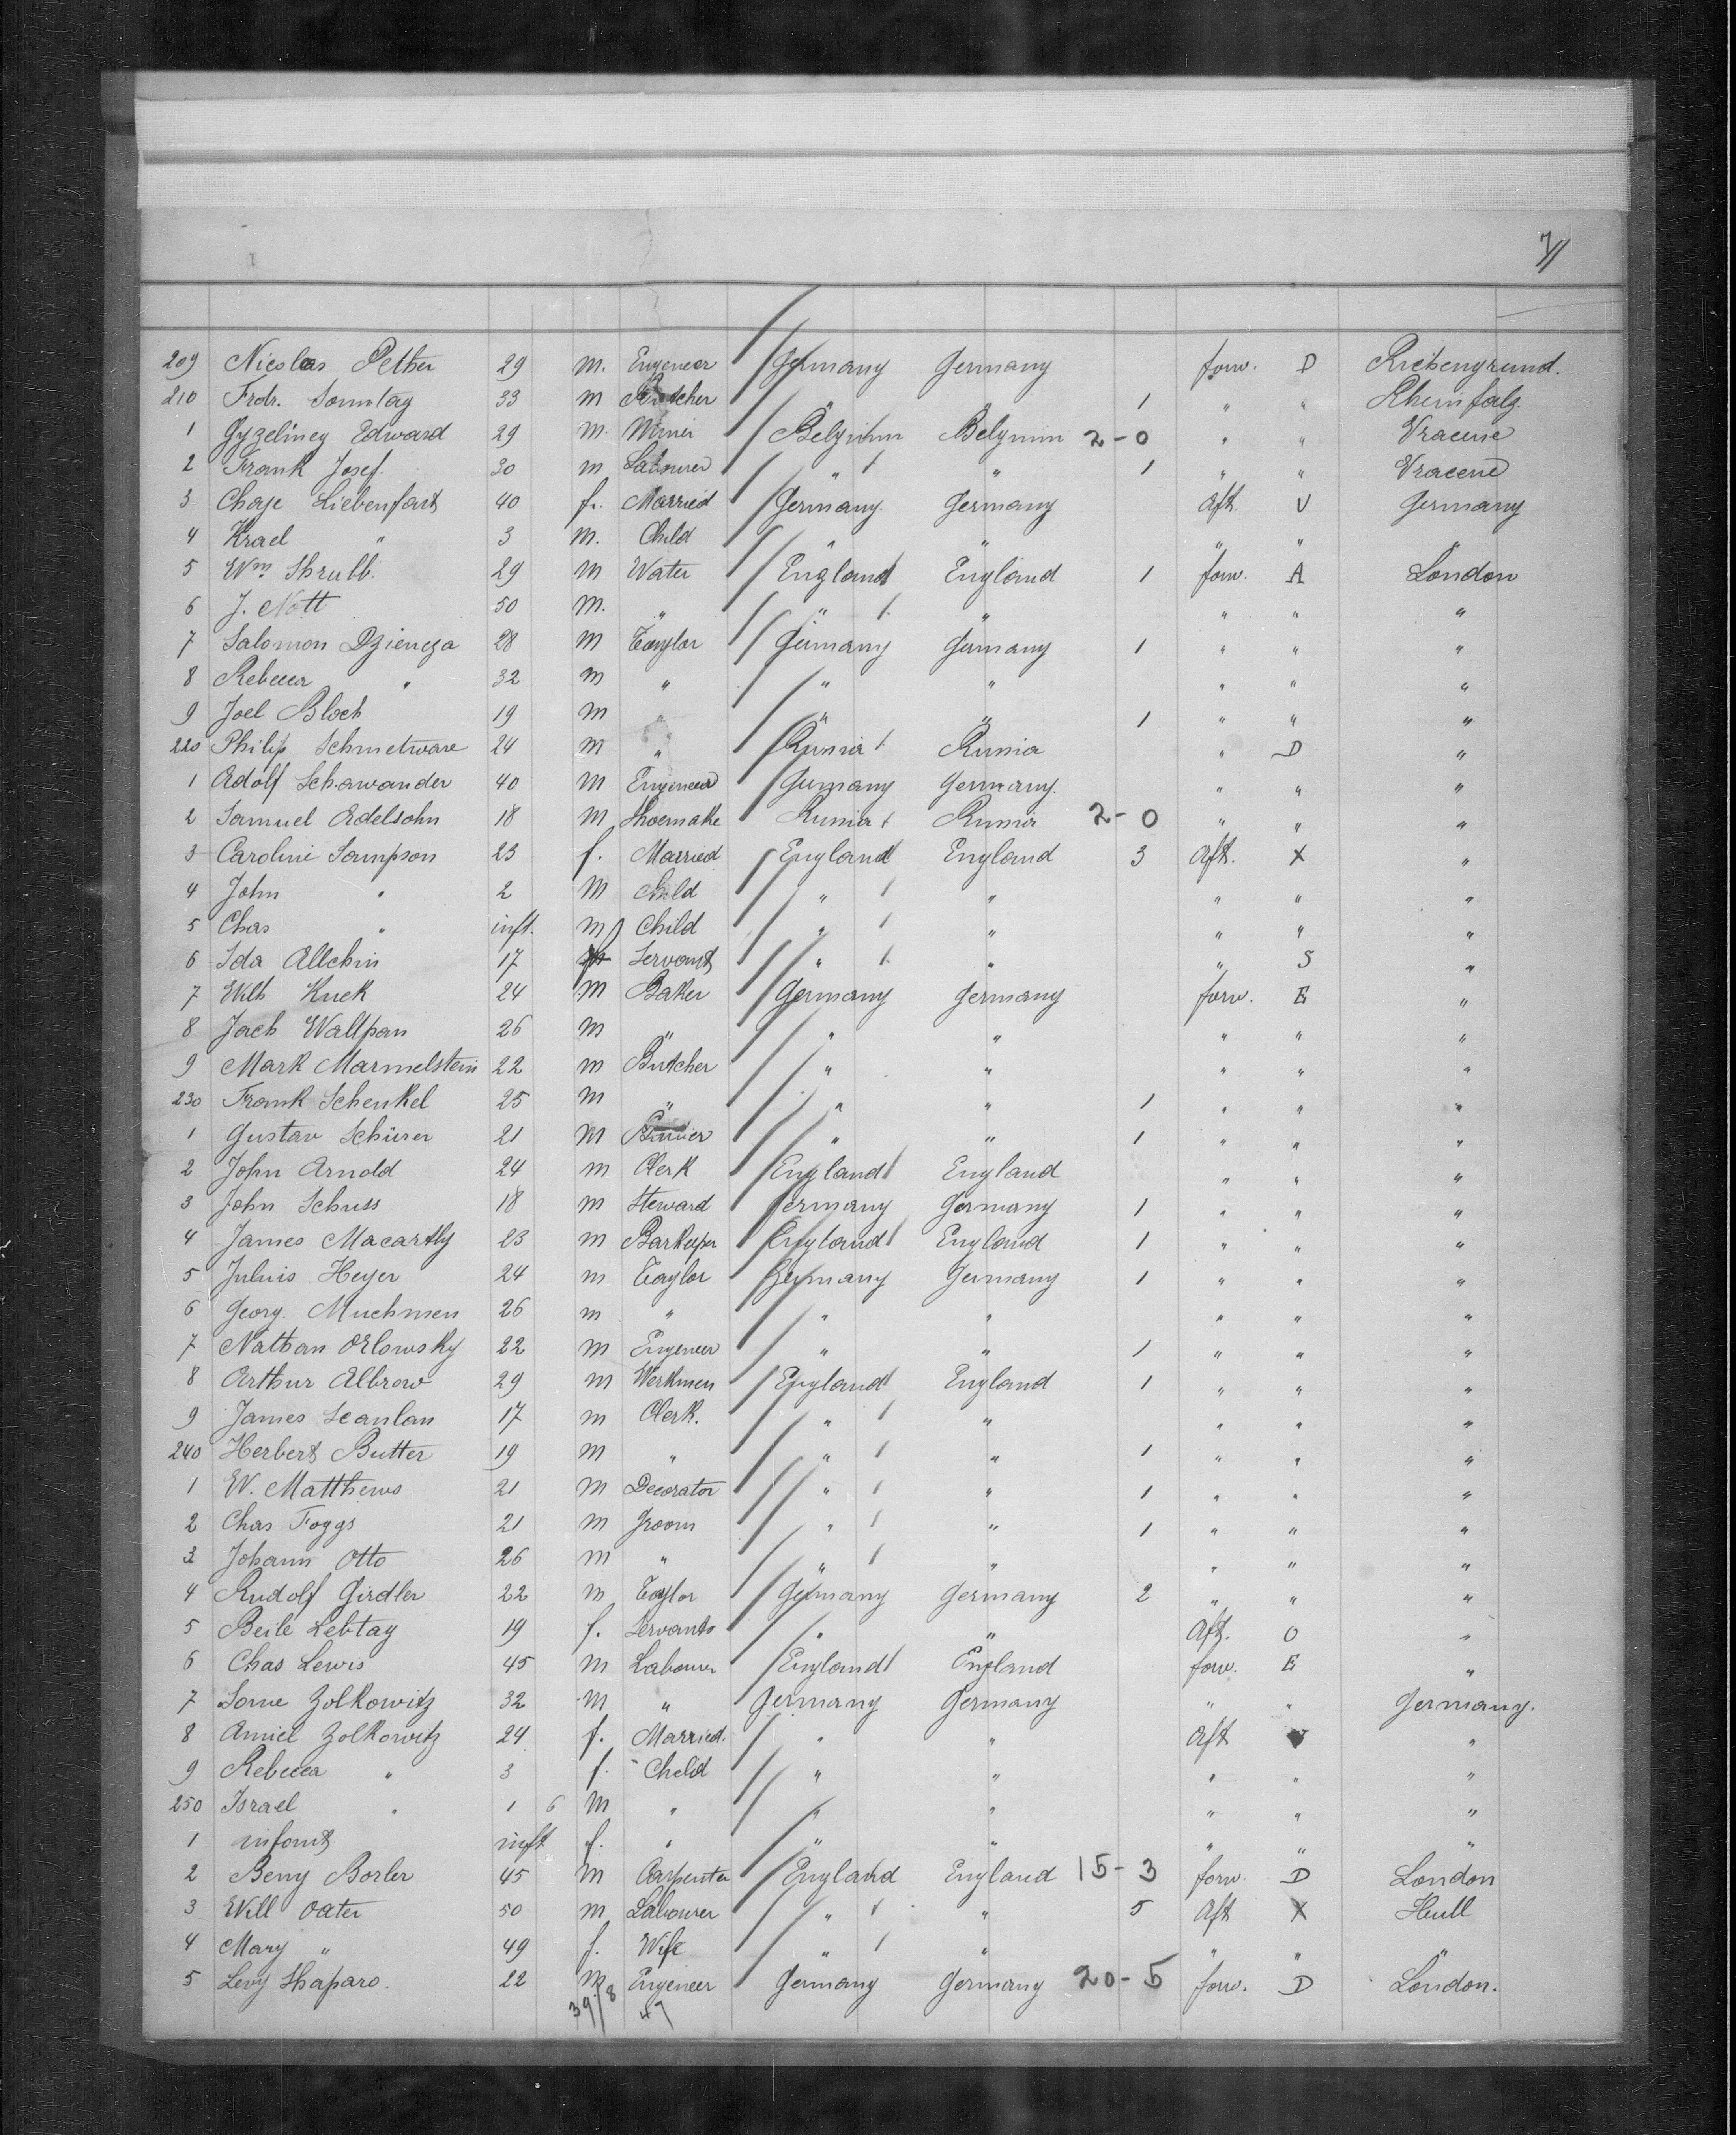 7/
209 Nicolas Pether 29 m. Engeneer Germany Germany forw. D Richengrund.
210 Frdr. Sonntag 33 m Butcher " " 1 " " Rheinfalz.
1 Gyzeliney Edward 29 m. Miner Belgium Belgium 2-0 " " Vracene
2 Frank Josef. 30 m Labourer " " 1 " " Vracene
3 Chaje Liebenfart 40 f. Married Germany. Germany aft. V Germany
4 Krael " 3 m. Child " " " " "
5 Wm. Shrubb. 29 m Water England England 1 forw. A London
6 J. Nott 50 m. " " " " " "
7 Salomon Dziencza 28 m Taylor Germany Germany 1 " " "
8 Rebecca " 32 m " " " " " "
9 Joel Bloch 19 m " " " 1 " " "
220 Philip Schmetware 24 m " Russia Russia " D "
1 Adolf Schawander 40 m Engeneer Germany Germany. " " "
2 Samuel Edelsohn 18 m Shoemake Russia Russia 2-0 " " "
3 Caroline Sampson 23 f. Married England England 3 aft. X "
4 John " 2 m Child " " " " "
5 Chas " inft. m Child " " " " "
6 Ida Allchin 17 Servant " " " S "
7 Wilh Kuck 24 m Baker Germany Germany forw. E "
8 Jack Wallpan 26 m " " " " " "
9 Mark Marmelstein 22 m Butcher " " " " "
230 Frank Schenkel 25 m " " " 1 " " "
1 Gustav Schürer 21 m " " 1 " " "
2 John Arnold 24 m Clerk England England " " "
3 John Schuss 18 m Steward Germany Germany 1 " " "
4 James Macarthy 23 m Barkeper England England 1 " " "
5 Julius Heyer 24 m Taylor Germany Germany 1 " " "
6 Georg. Muchmen 26 m " " " " " "
7 Nathan Orlowsky 22 m Engeneer " " 1 " " "
8 Arthur Albrow 29 m Werkmen England England 1 " " "
9 James Scanlan 17 m Clerk. " " " " "
240 Herbert Butter 19 m " " " 1 " " "
1 W. Matthews 21 m Decorator " " 1 " " "
2 Chas Foggs 21 m Groom " " 1 " " "
3 Johann Otto 26 m " " " " " "
4 Rudolf Girdler 22 m Taylor Germany Germany 2 " " "
5 Beile Lebtag 19 f. Servants " " Aft. O "
6 Chas Lewis 45 m Labourer England England forw. E "
7 Sorne Zolkowitz 32 m " Germany Germany " " Germany.
8 Amiel Zolkowitz 24 f. Married. " " Aft "
9 Rebecca " 3 f. Cheld " " " " "
250 Israel " 1 6 m " " " " " "
1 infant inft f. " " " " " "
2 Beny Borler 45 m Carpenter England England 15-3 forw. D London
3 Will Oater 50 m Labourer " " 5 Aft X Hull
4 Mary " 49 f. Wife " " " " "
5 Levy Shaparo. 22 m Engeneer Germany Germany 20-5 forw. D London.
39/8 47